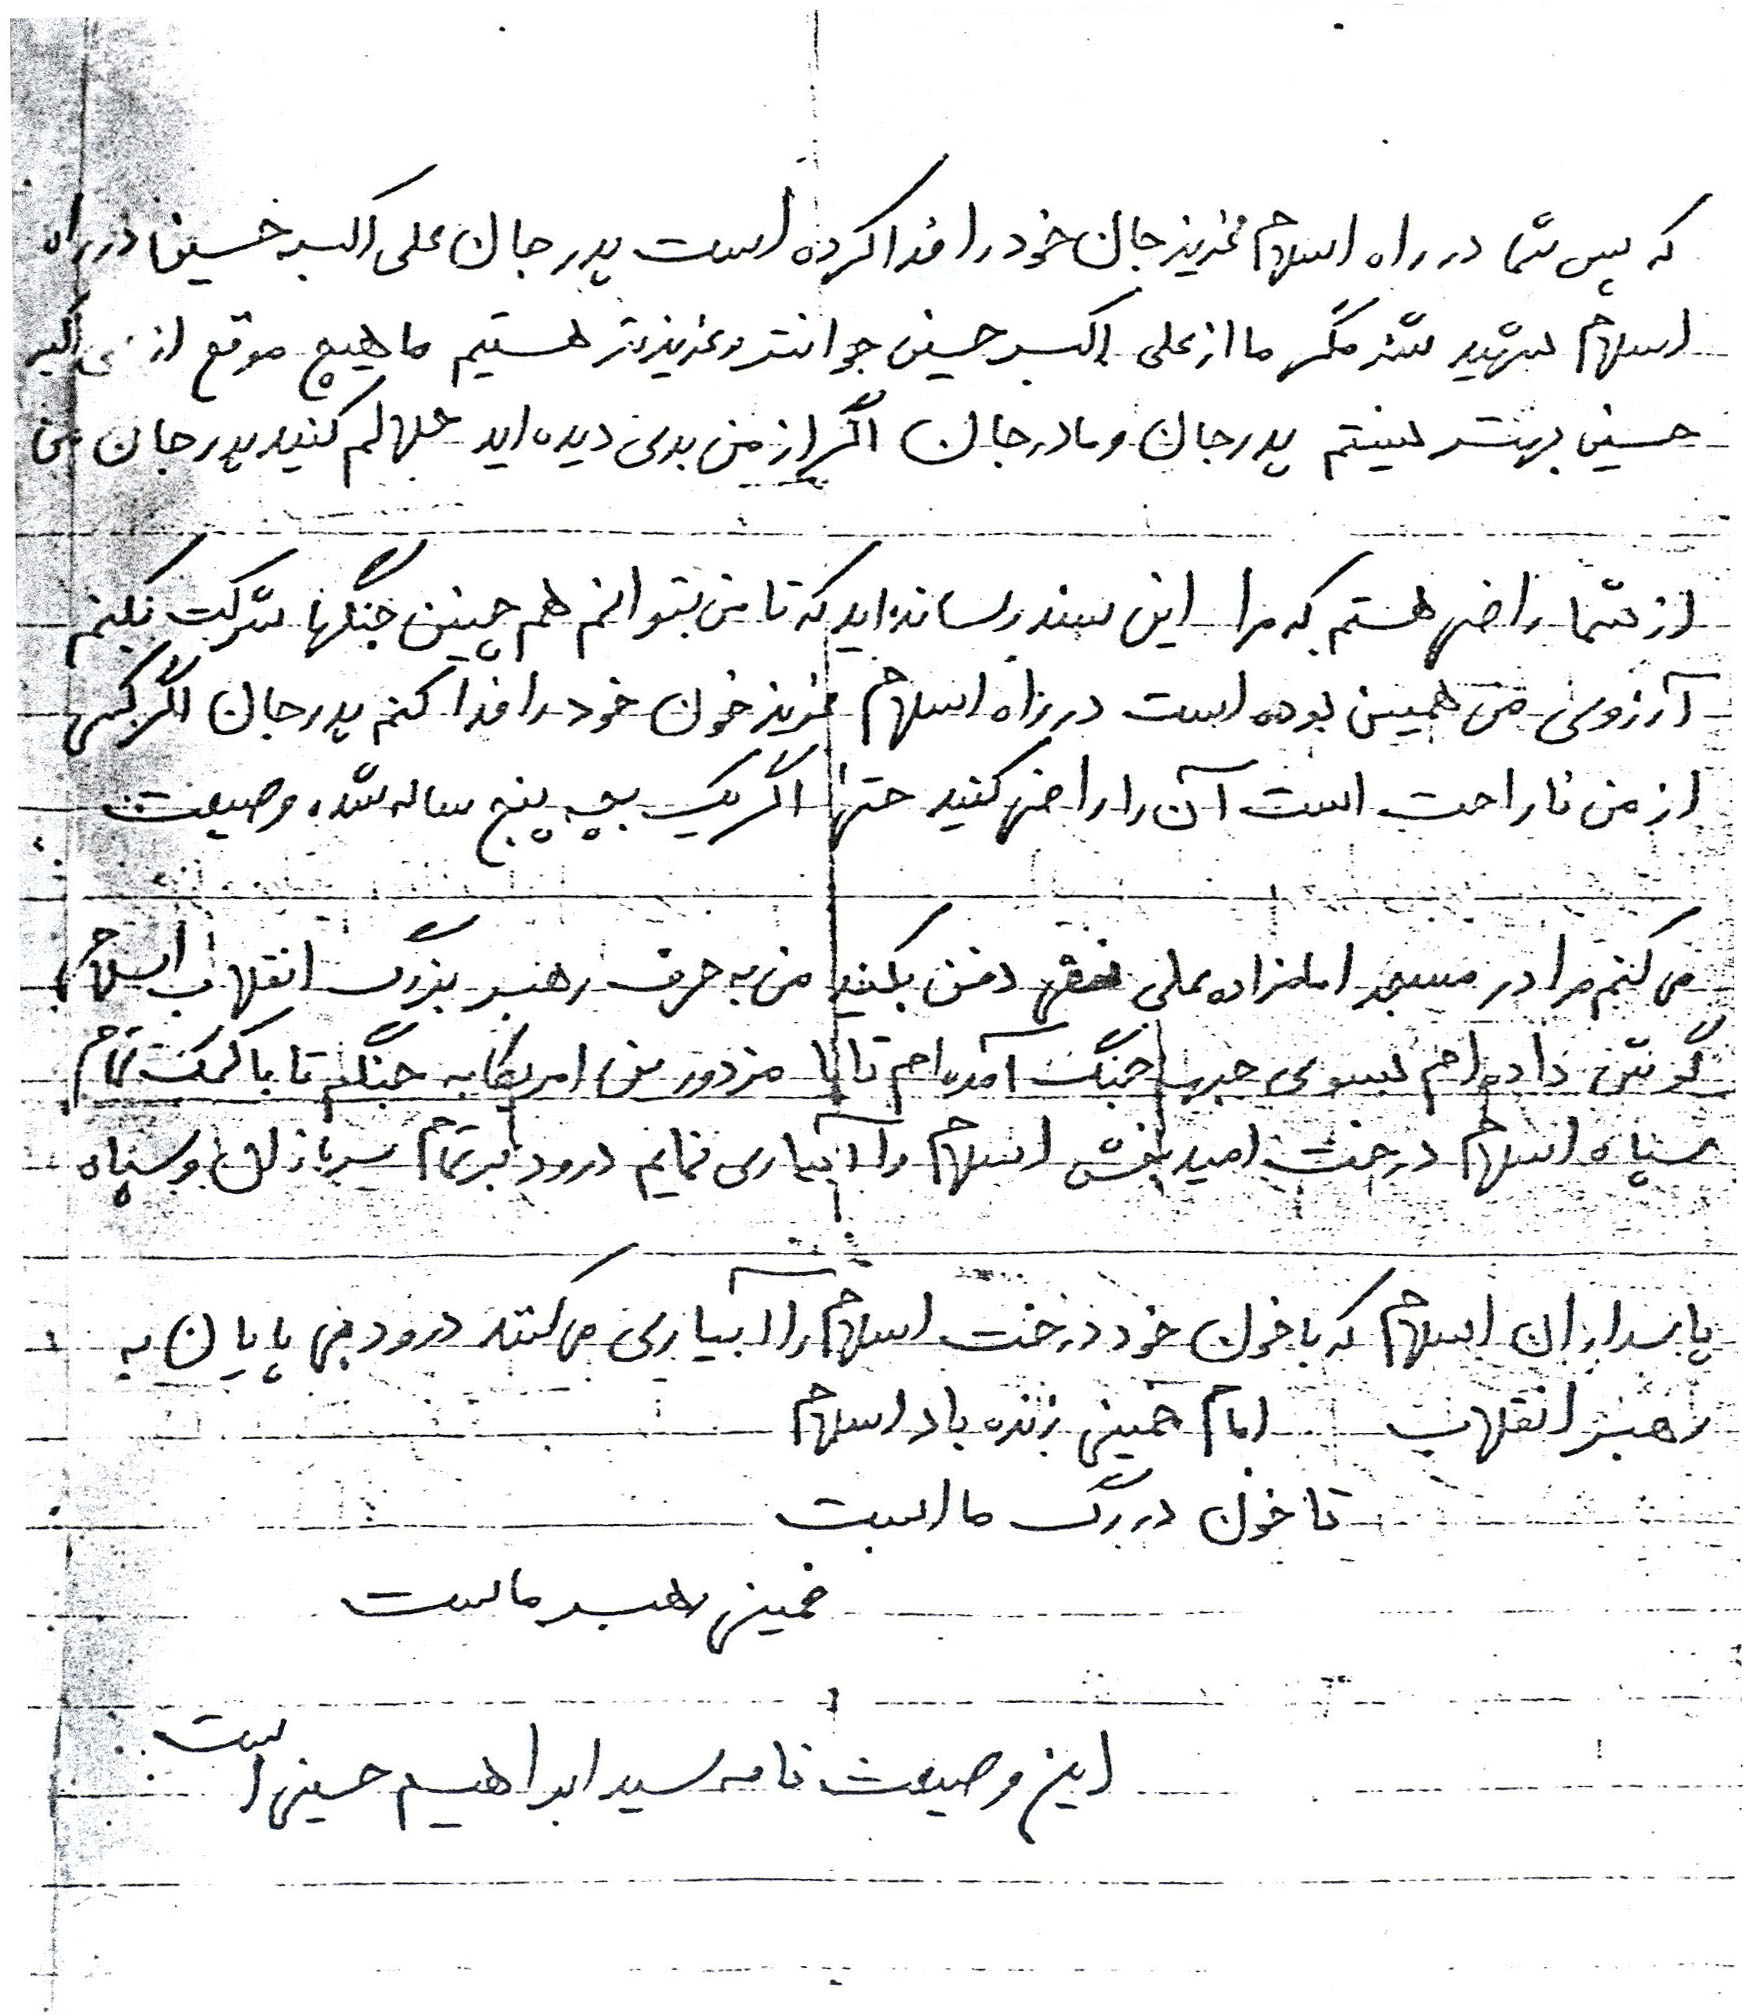 که پس شما در راه اسلام عزیز جان خود را فدا کرده است پدر جان علی اکبر حسین در راه
اسلام شهید شد مگر ما از علی اکبر حسین جوانتر و عزیزتر هستیم ما هیچ موقع از علی اکبر
حسین بهتر نیستم پدر جان و مادر جان اگر از من بدی دیده اید حلالم کنید پدر جان من
از شما راضی هستم که مرا این سند رسانده اید که تا من بتوانم هم چنین جنگها شرکت بکنم
آرزوی من همین بوده است در راه اسلام عزیز خون خود را فدا کنم پدر جان اگر کسی
از من ناراحت است آن را راضی کنید حتی اگر یک بچه پنج ساله شده وصیعت
می کنم مرا در مسجد امامزاده علی دفن بکنید من به حرف رهبر بزرگ انقلاب اسلامی
گوش داده ام بسوی جبهه جنگ آمده ام تا با مزدورین امریکا به جنگم تا با کمک تمام
سپاه اسلام درخت امید بخش اسلام را آبیاری نمایم درود بر تمام سربازان و سپاه
پاسداران اسلام که با خون خود درخت اسلام را آبیاری می کنند درود بی پایان به
رهبر انقلاب امام خمینی زنده باد اسلام
تا خون در رگ ما است
خمینی رهبر ماست
این وصیعت نامه سید ابراهیم حسینی است